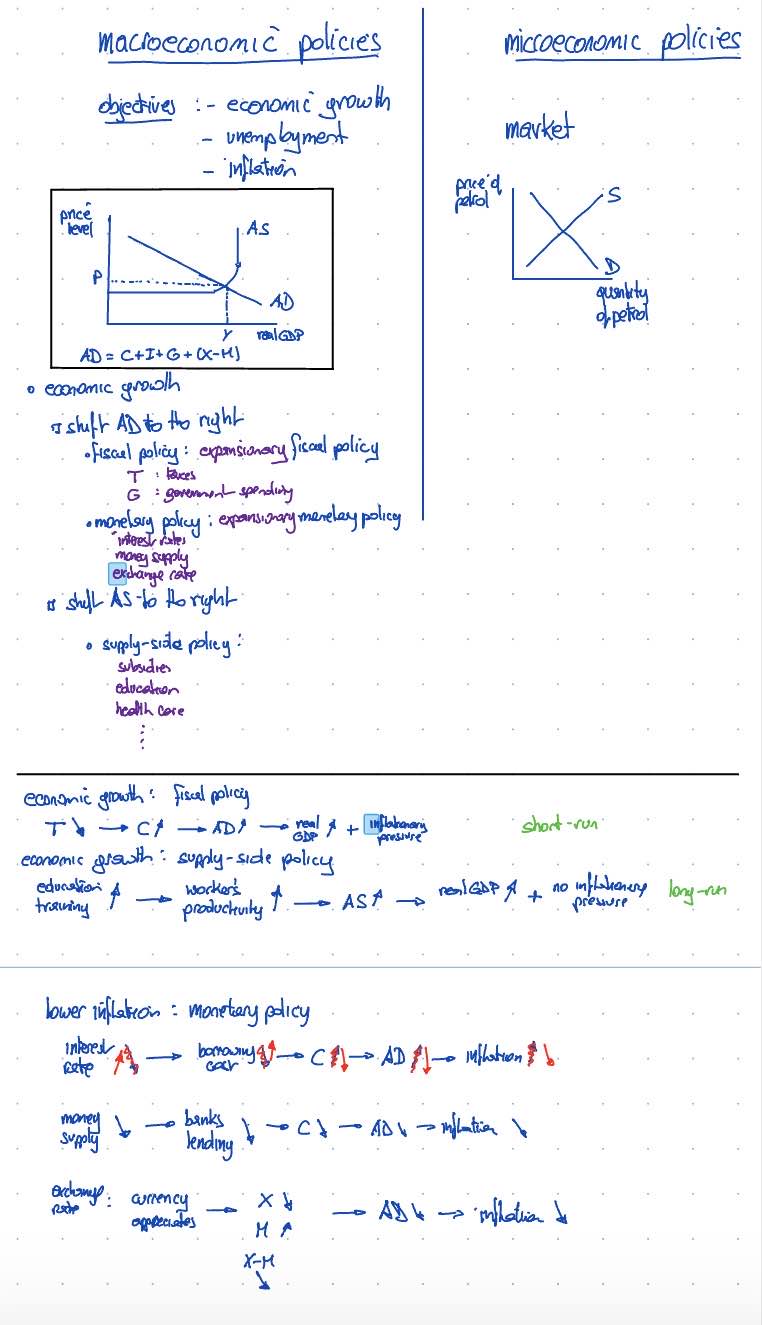 macroeconomic policies
microeconomic policies
objectives : - economic growth
- unemployment
- inflation
market
price level
AS
P
AD
Y
real GDP
AD = C+I+G+(X-M)
price of petrol
S
D
quantity of petrol
economic growth
shift AD to the right
• fiscal policy : expansionary fiscal policy
T : taxes
G : government spending
• monetary policy : expansionary monetary policy
interest rates
money supply
exchange rate
shift AS to the right
• supply-side policy :
subsidies
education
health care
economic growth : fiscal policy
T ↘ → C ↗ → AD ↗ → real GDP ↗ + inflationary pressure
short-run
economic growth : supply-side policy
education training ↗ → worker's productivity ↗ → AS ↗ → real GDP ↗ + no inflationary pressure
long-run
lower inflation : monetary policy
interest rate ↗ → borrowing cost ↗ → C ↓ → AD ↓ → inflation ↘
money supply ↘ → banks lending ↘ → C ↘ → AD ↘ → inflation ↘
exchange rate : currency appreciates → X ↘ → AD ↘ → inflation ↘
M ↗
X-M
↘